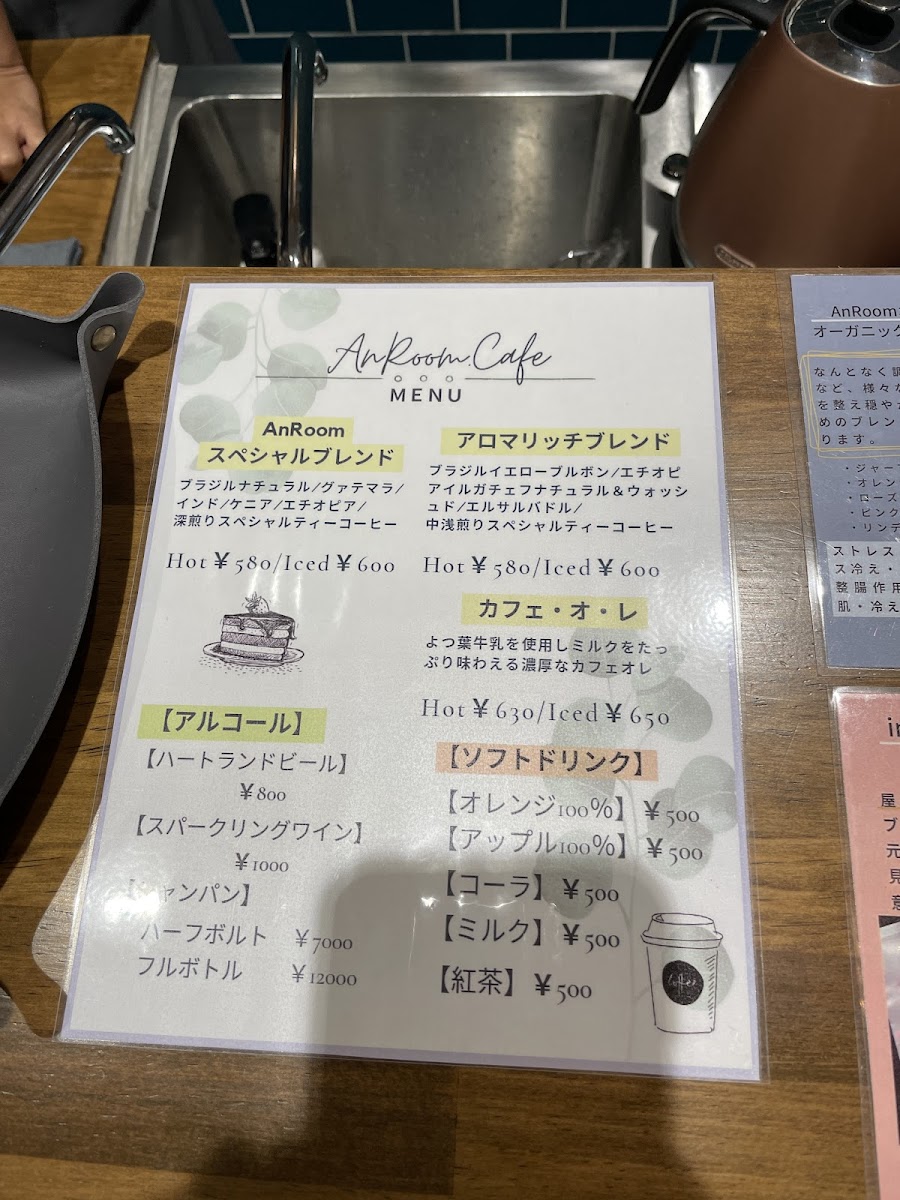 AnRoom.Cafe
MENU
AnRoom
スペシャルブレンド
ブラジルナチュラル/グァテマラ/
インド/ケニア/エチオピア/
深煎りスペシャルティーコーヒー
Hot ¥580/Iced ¥600
【アルコール】
【ハートランドビール】
¥800
【スパークリングワイン】
¥1000
【シャンパン】
ハーフボルト ¥7000
フルボトル ¥12000
アロマリッチブレンド
ブラジルイエローブルボン/エチオピ
アイルガチェフナチュラル＆ウォッシ
ュド/エルサルバドル/
中浅煎りスペシャルティーコーヒー
Hot ¥580/Iced ¥600
カフェ・オ・レ
よつ葉牛乳を使用しミルクをたっ
ぷり味わえる濃厚なカフェオレ
Hot ¥630/Iced ¥650
【ソフトドリンク】
【オレンジ100%】 ¥500
【アップル100%】 ¥500
【コーラ】 ¥500
【ミルク】 ¥500
【紅茶】 ¥500
AnRoom
オーガニック
なんとなく
など、様々
を整え穏や
めのブレン
ります。
・ジャー
・オレン
・ローズ
・ピンク
・リンデ
ストレス
ス冷え・
整腸作用
肌・冷え
屋
ブ
元
見
意